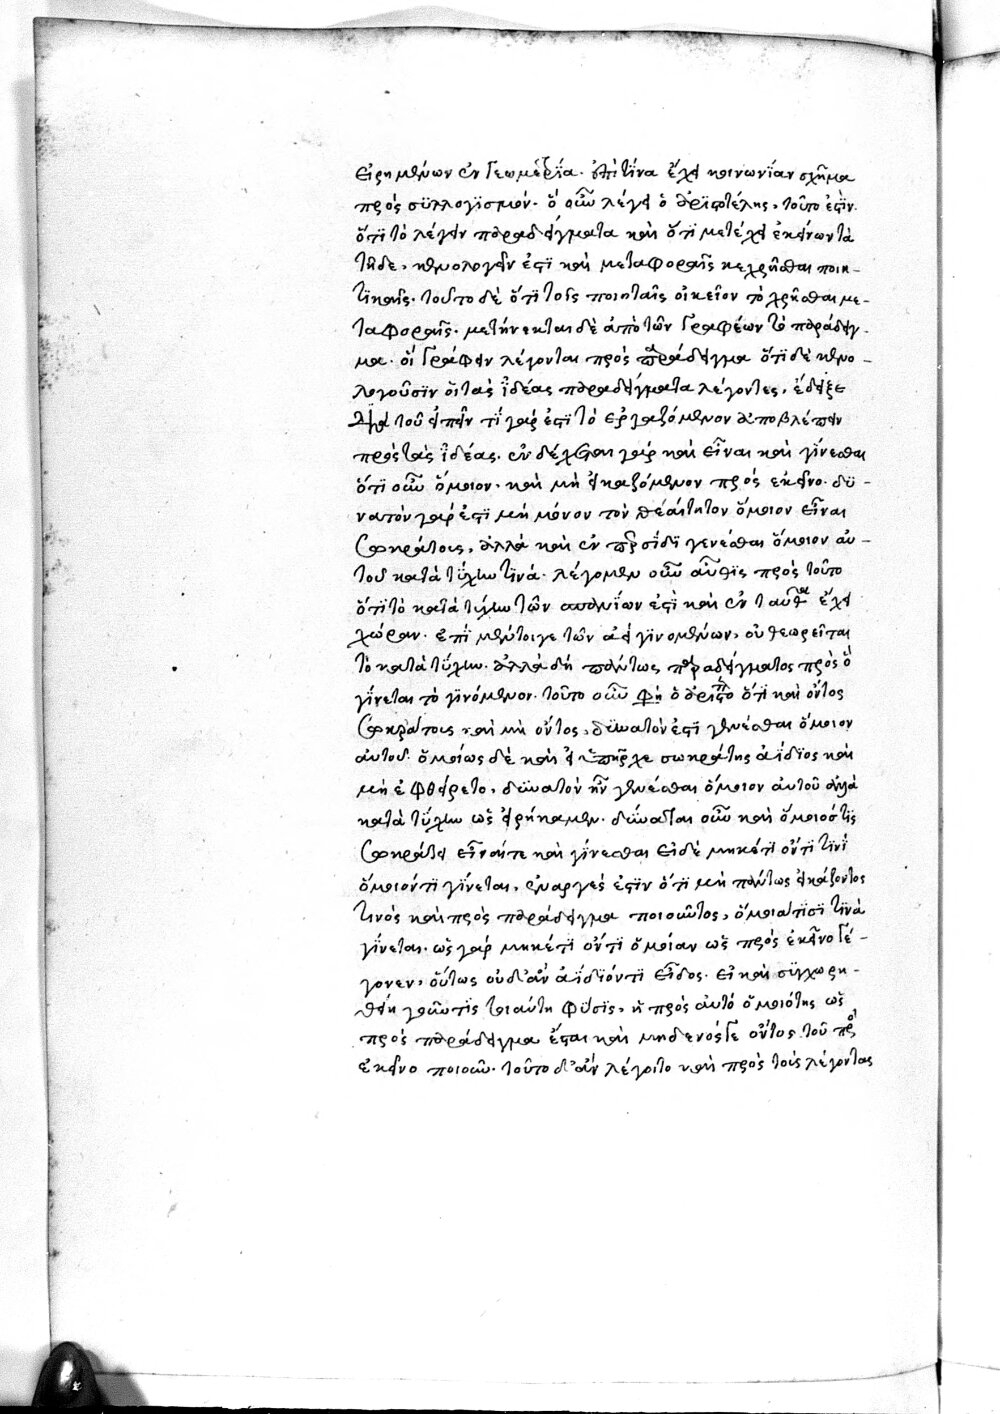 εἰρημένων ἐν γεωμετρία. ἐπὶ τίνα ἔχει κοινωνίαν σχῆμα
πρὸς συλλογισμόν. ὃ οὖν λέγει ὁ ἀριστοτέλης, τοῦτο ἐστὶν.
ὅτι τὸ λέγειν παραδείγματα καὶ ὅτι μετέχει ἐκείνων τὰ
τῇδε, κενολογεῖν ἐστὶ καὶ μεταφοραῖς κεχρῆσθαι ποιη-
τικαῖς. τοῦτο δὲ ὅτι τοῖς ποιηταῖς οἰκεῖον τὸ χρῆσθαι με-
ταφοραῖς. μετήνεκται δὲ ἀπὸ τῶν γραφέων τὸ παράδειγ-
μα. οἱ γράφειν λέγονται πρὸς παράδειγμα ὅτι δὲ κενο-
λογοῦσιν οἱ τὰς ἰδέας παραδείγματα λέγοντες, ἔδειξε
διὰ τοῦ εἰπεῖν τί γάρ ἐστι τὸ ἐργαζόμενον ἀποβλέπειν
πρὸς τὰς ἰδέας. ἐνδέχεται γάρ καὶ εἶναι καὶ γίνεσθαι
ὁτι οὖν ὅμοιον. καὶ μὴ εἰκαζόμενον πρὸς ἐκεῖνο. δυ-
νατὸν γάρ ἐστι μὴ μόνον τὸν θεαίτητον ὅμοιον εἶναι
σωκράτους, ἀλλὰ καὶ ἐν περσίδι γενέσθαι ὅμοιον αὐ-
τοῦ κατὰ τύχην τινά. λέγομεν οὖν αὖθις πρὸς τοῦτο
ὅτι τὸ κατὰ τύχην τῶν ἀπλανίων ἐστὶ καὶ ἐν ταῦθα ἔχει
χώραν. ἐπὶ μέντοιγε τῶν ἀεὶ γινομένων, οὐ θεωρεῖται
τὸ κατὰ τύχην. ἀλλὰ δὴ πάντως παραδείγματος πρὸς ὃ
γίνεται τὸ γινόμενον. τοῦτο οὖν φη ὁ ἀριστο ὅτι καὶ ὄντος
σωκράτους καὶ μὴ ὄντος, δυνατὸν ἐστὶ γενέσθαι ὅμοιον
αὐτοῦ. ὁμοίως δὲ καὶ εἰ ὑπῆρχε σωκράτης ἀίδιος καὶ
μὴ ἐφθείρετο, δυνατὸν ἦν γενέσθαι ὅμοιον αὐτοῦ ἀλλὰ
κατὰ τύχην ὡς εἰρήκαμεν. δύναται οὖν καὶ ὅμοιός τις
σωκράτει εἶναί τε καὶ γίνεσθαι εἰ δὲ μηκέτι ὄντι τινὶ
ὅμοιόν τι γίνεται, ἐναργές ἐστιν ὅτι μὴ πάντως εἰκάζοντος
τινὸς καὶ πρὸς παράδειγμα ποιοῦντος, ὅμοια τισὶ τινὰ
γίνεται. ὡς γὰρ μηκέτι ὄντι ὅμοιαν ὡς πρὸς ἐκεῖνο γέ-
γονεν, οὕτως οὐδ' ἂν ἀϊδίον τι εἶδος. εἰ καὶ συγχωρη-
θείη γοῦν τις τοιαύτη φύσις, ἡ πρὸς αὐτό ὁμοιότης ὡς
πρὸς παράδειγμα ἔσται καὶ μηδενός γε ὄντος τοῦ πρὸς
ἐκεῖνο ποιοῦν. τοῦτο δ' ἂν λέγοιτο καὶ πρὸς τοὺς λέγοντας